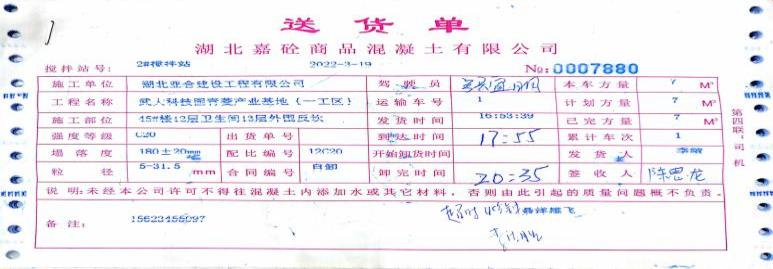 送货单
湖北嘉砼商品混凝土有限公司
搅拌站号: 2#搅拌站 2022-3-19 No:0007880
施工单位 湖北亚合建设工程有限公司 驾驶员 本车方量 7 M³
工程名称 武人科技园菁菱产业基地(一工区) 运输车号 1 计划方量 7 M³
施工部位 45#楼12层卫生间13层外围反坎 发货时间 16:53:39 已完方量 7 M³
强度等级 C20 出货单号 到达时间 17:55 累计车次 1
塌落度 180±20mm 配比编号 12C20 开始卸货时间 发货人 李敏
粒径 5-31.5 mm 合同编号 自卸 卸完时间 20:35 签收人 陈思龙
说明:未经本公司许可不得往混凝土内添加水或其它材料,否则由此引起的质量问题概不负责.
超时
备注: 15623455097
第四联:司机